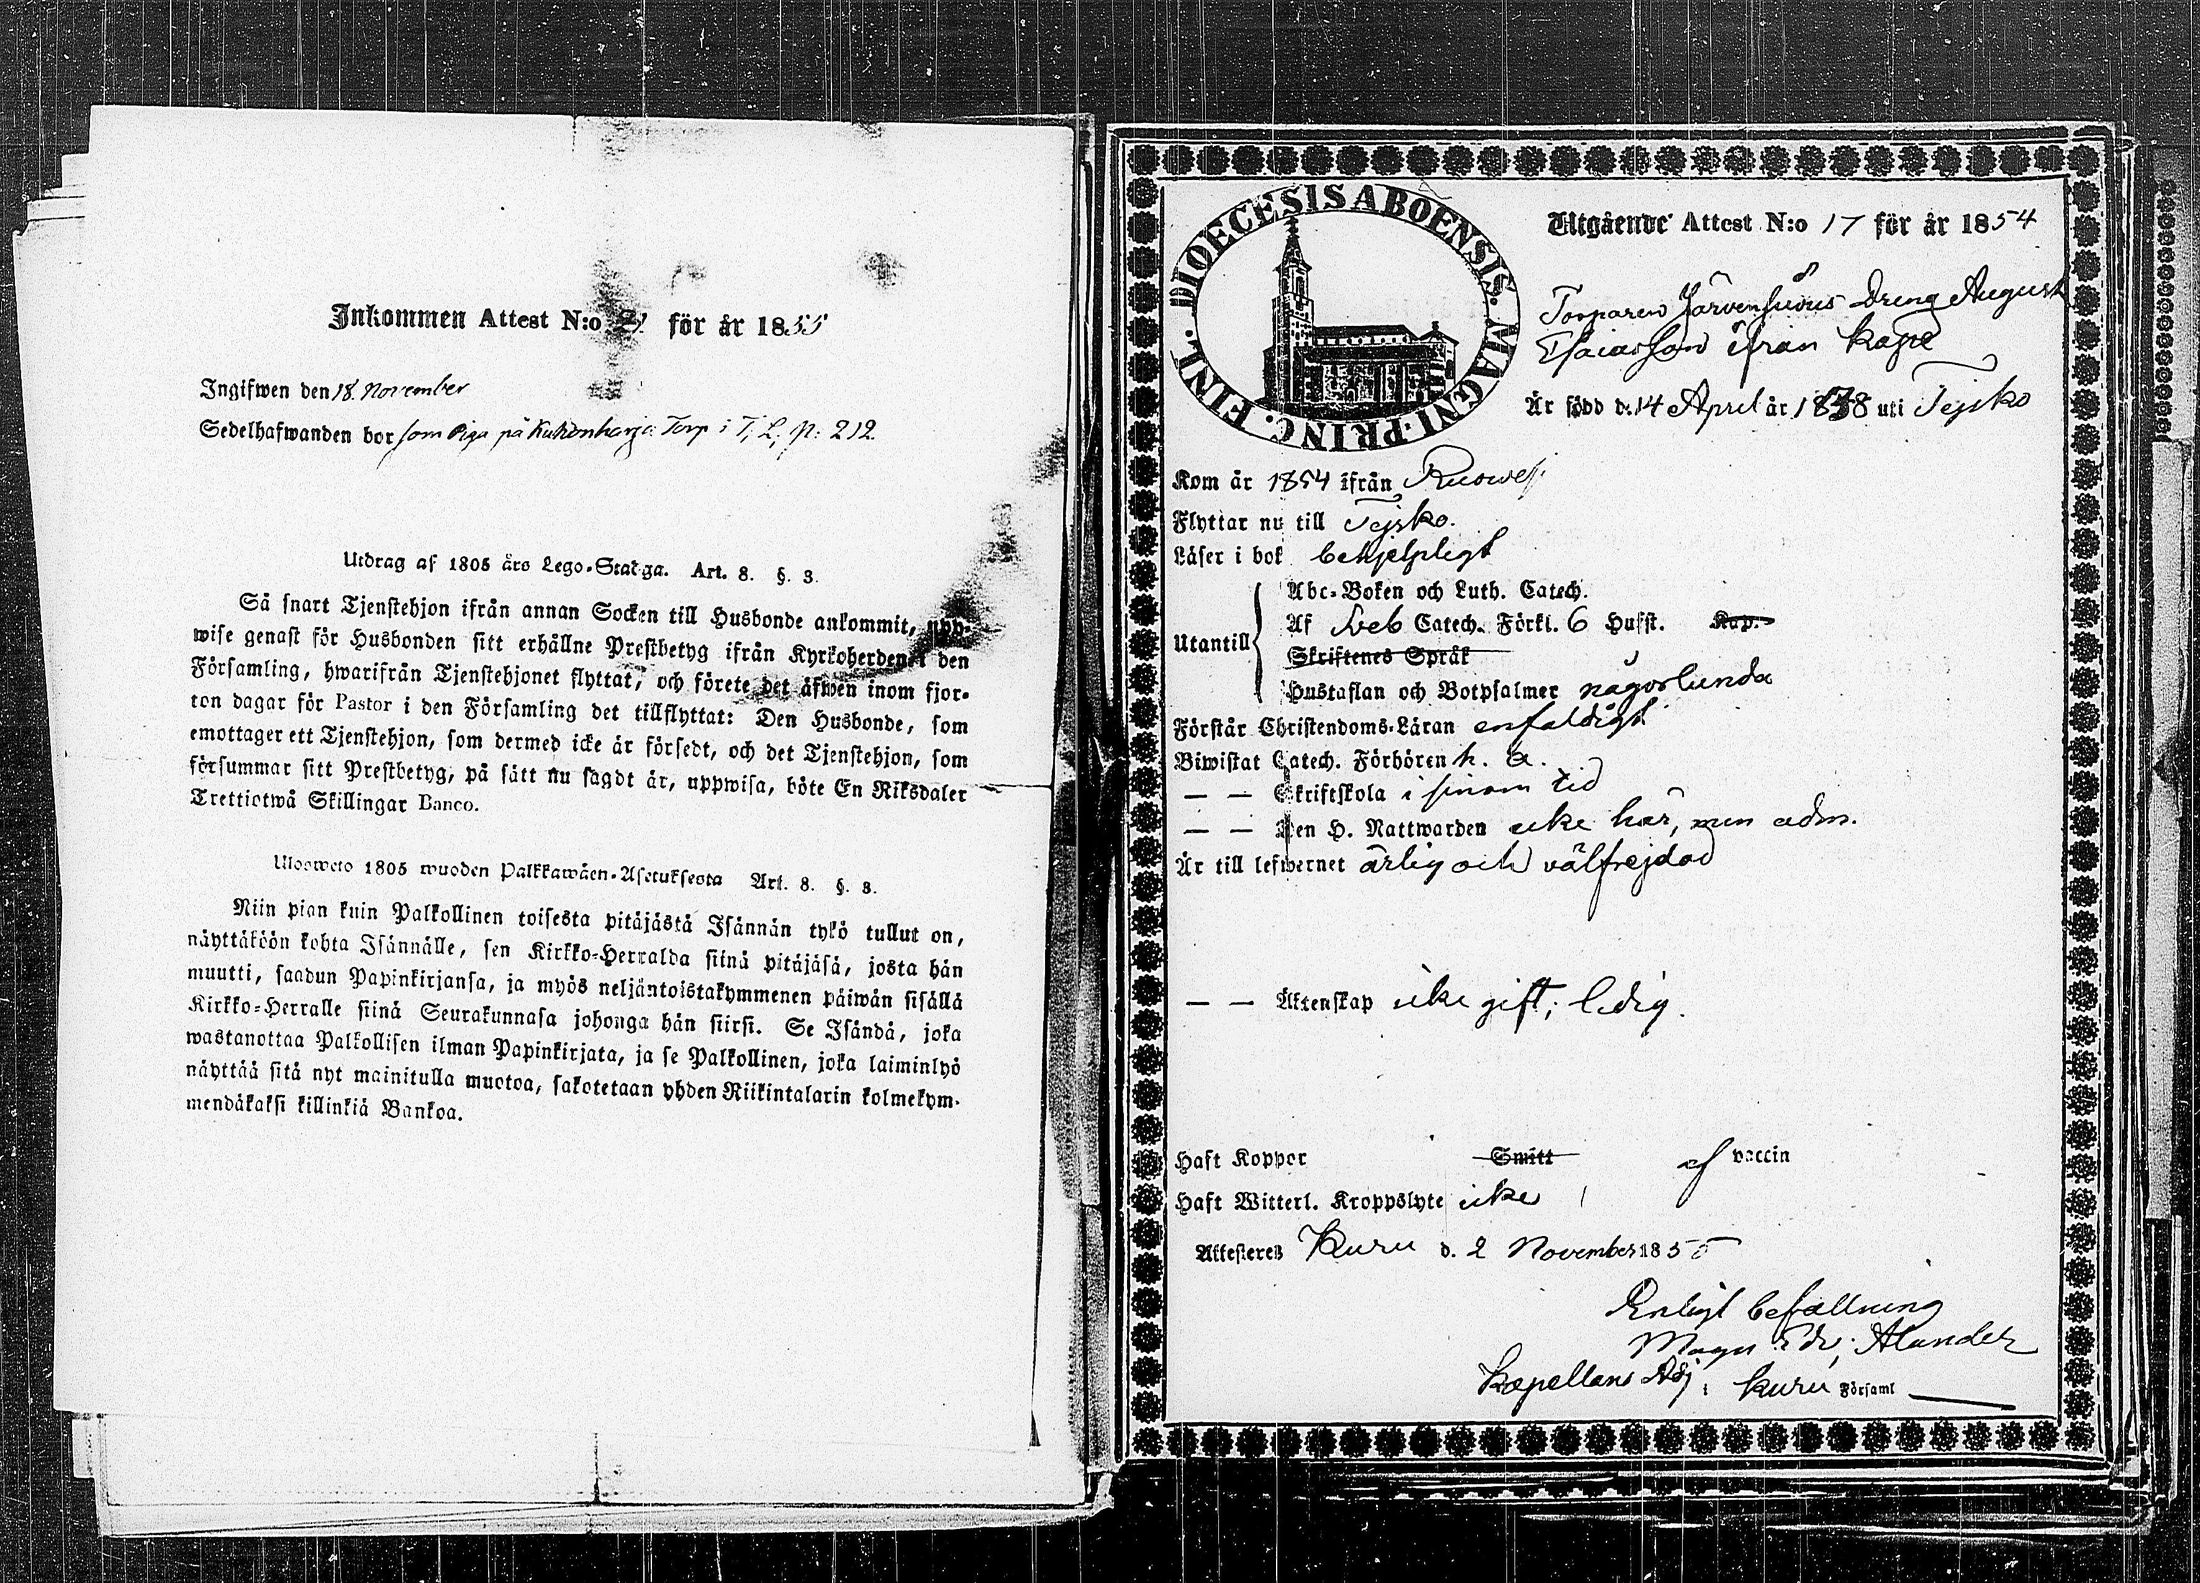 Inkommen Attest N:o 21 för år 1855
Ingifwen den 18. November
Sedelhafwanden bor som Piga på Kukonharja Torp i T. L. p: 212.
Utdrag af 1805 års Lego-Stadga. Art. 8. §. 3.
Så snart Tjenstehjon ifrån annan Socken till Husbonde ankommit, upp-
wise genast för Husbonden sitt erhållne Prestbetyg ifrån Kyrkoherden i den
Församling, hwarifrån Tjenstehjonet flyttat, och förete det äfwen inom fjor-
ton dagar för Pastor i den Församling det tillflyttat: Den Husbonde, som
emottager ett Tjenstehjon, som dermed icke är försedt, och det Tjenstehjon, som
försummar sitt Prestbetyg, på sätt nu sagdt är, uppwisa, böte En Riksdaler
Trettiotwå Skillingar Banco.
Ulosweto 1805 wuoden Palkkawäen-Asetuksesta Art. 8. §. 3.
Niin pian kuin Palkollinen toisesta pitäjästä Isännän tykö tullut on,
näyttäköön kohta Isännälle, sen Kirkko-Herralda siinä pitäjäsä, josta hän
muutti, saadun Papinkirjansa, ja myös neljäntoistakymmenen päiwän sisällä
Kirkko-Herralle siinä Seurakunnasa johonga hän siirsi. Se Isändä, joka
wastanottaa Palkollisen ilman Papinkirjata, ja se Palkollinen, joka laiminlyö
näyttää sitä nyt mainitulla muotoa, sakotetaan yhden Riikintalarin kolmekym-
mendäkaksi killinkiä Bankoa.
DIOECESIS ABOENSIS. MAGNI. PRINC. FINL.
Utgående Attest N:o 17 för år 1854
Torparen Järvensivus Dreng August
Esaiasson ifrån Kapé
Är född d. 14 April år 1838 uti Tejsko
Kom år 1854 ifrån Ruowesi
Flyttar nu till Tejsko.
Läser i bok behjelpligt
Utantill
Abc-Boken och Luth. Catech.
Af Sveb Catech. Förkl. 6 Hufst. Kap.
Skriftenes Språk
Hustaflan och Botpsalmer någorlunda
Förstår Christendoms-Läran enfaldigt
Biwistat Catech. Förhören h. a.
— — Skriftskola i sinom tid
— — Den H. Nattwarden icke här, men adm.
Är till lefwernet ärlig och välfrejdad
— — Äktenskap icke gift; ledig.
Haft Koppor Smitt af vaccin
Haft Witterl. Kroppslyte icke
Attesteres Kuru d. 2 November 1855
Enligt befallning
Magn: Fr; Alander
Kapellans Adj i Kuru Församl